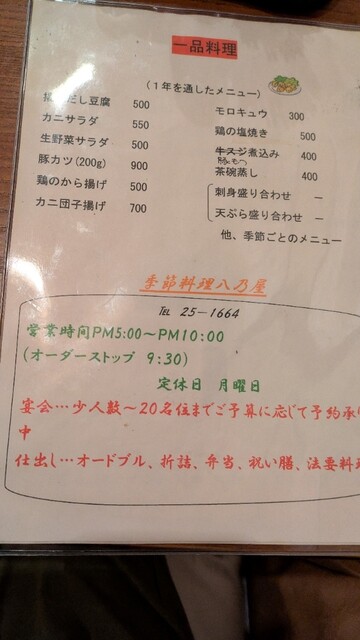 一品料理
(1年を通したメニュー)
揚げだし豆腐 500
カニサラダ 550
生野菜サラダ 500
豚カツ(200g) 900
鶏のから揚げ 500
カニ団子揚げ 700
モロキュウ 300
鶏の塩焼き 500
牛スジ煮込み 400
豚もつ
茶碗蒸し 400
刺身盛り合わせ ―
天ぷら盛り合わせ ―
他、季節ごとのメニュー
季節料理八乃屋
℡ 25-1664
営業時間PM5:00~PM10:00
(オーダーストップ 9:30)
定休日 月曜日
宴会…少人数~20名位までご予算に応じて予約承り
中
仕出し…オードブル、折詰、弁当、祝い膳、法要料理